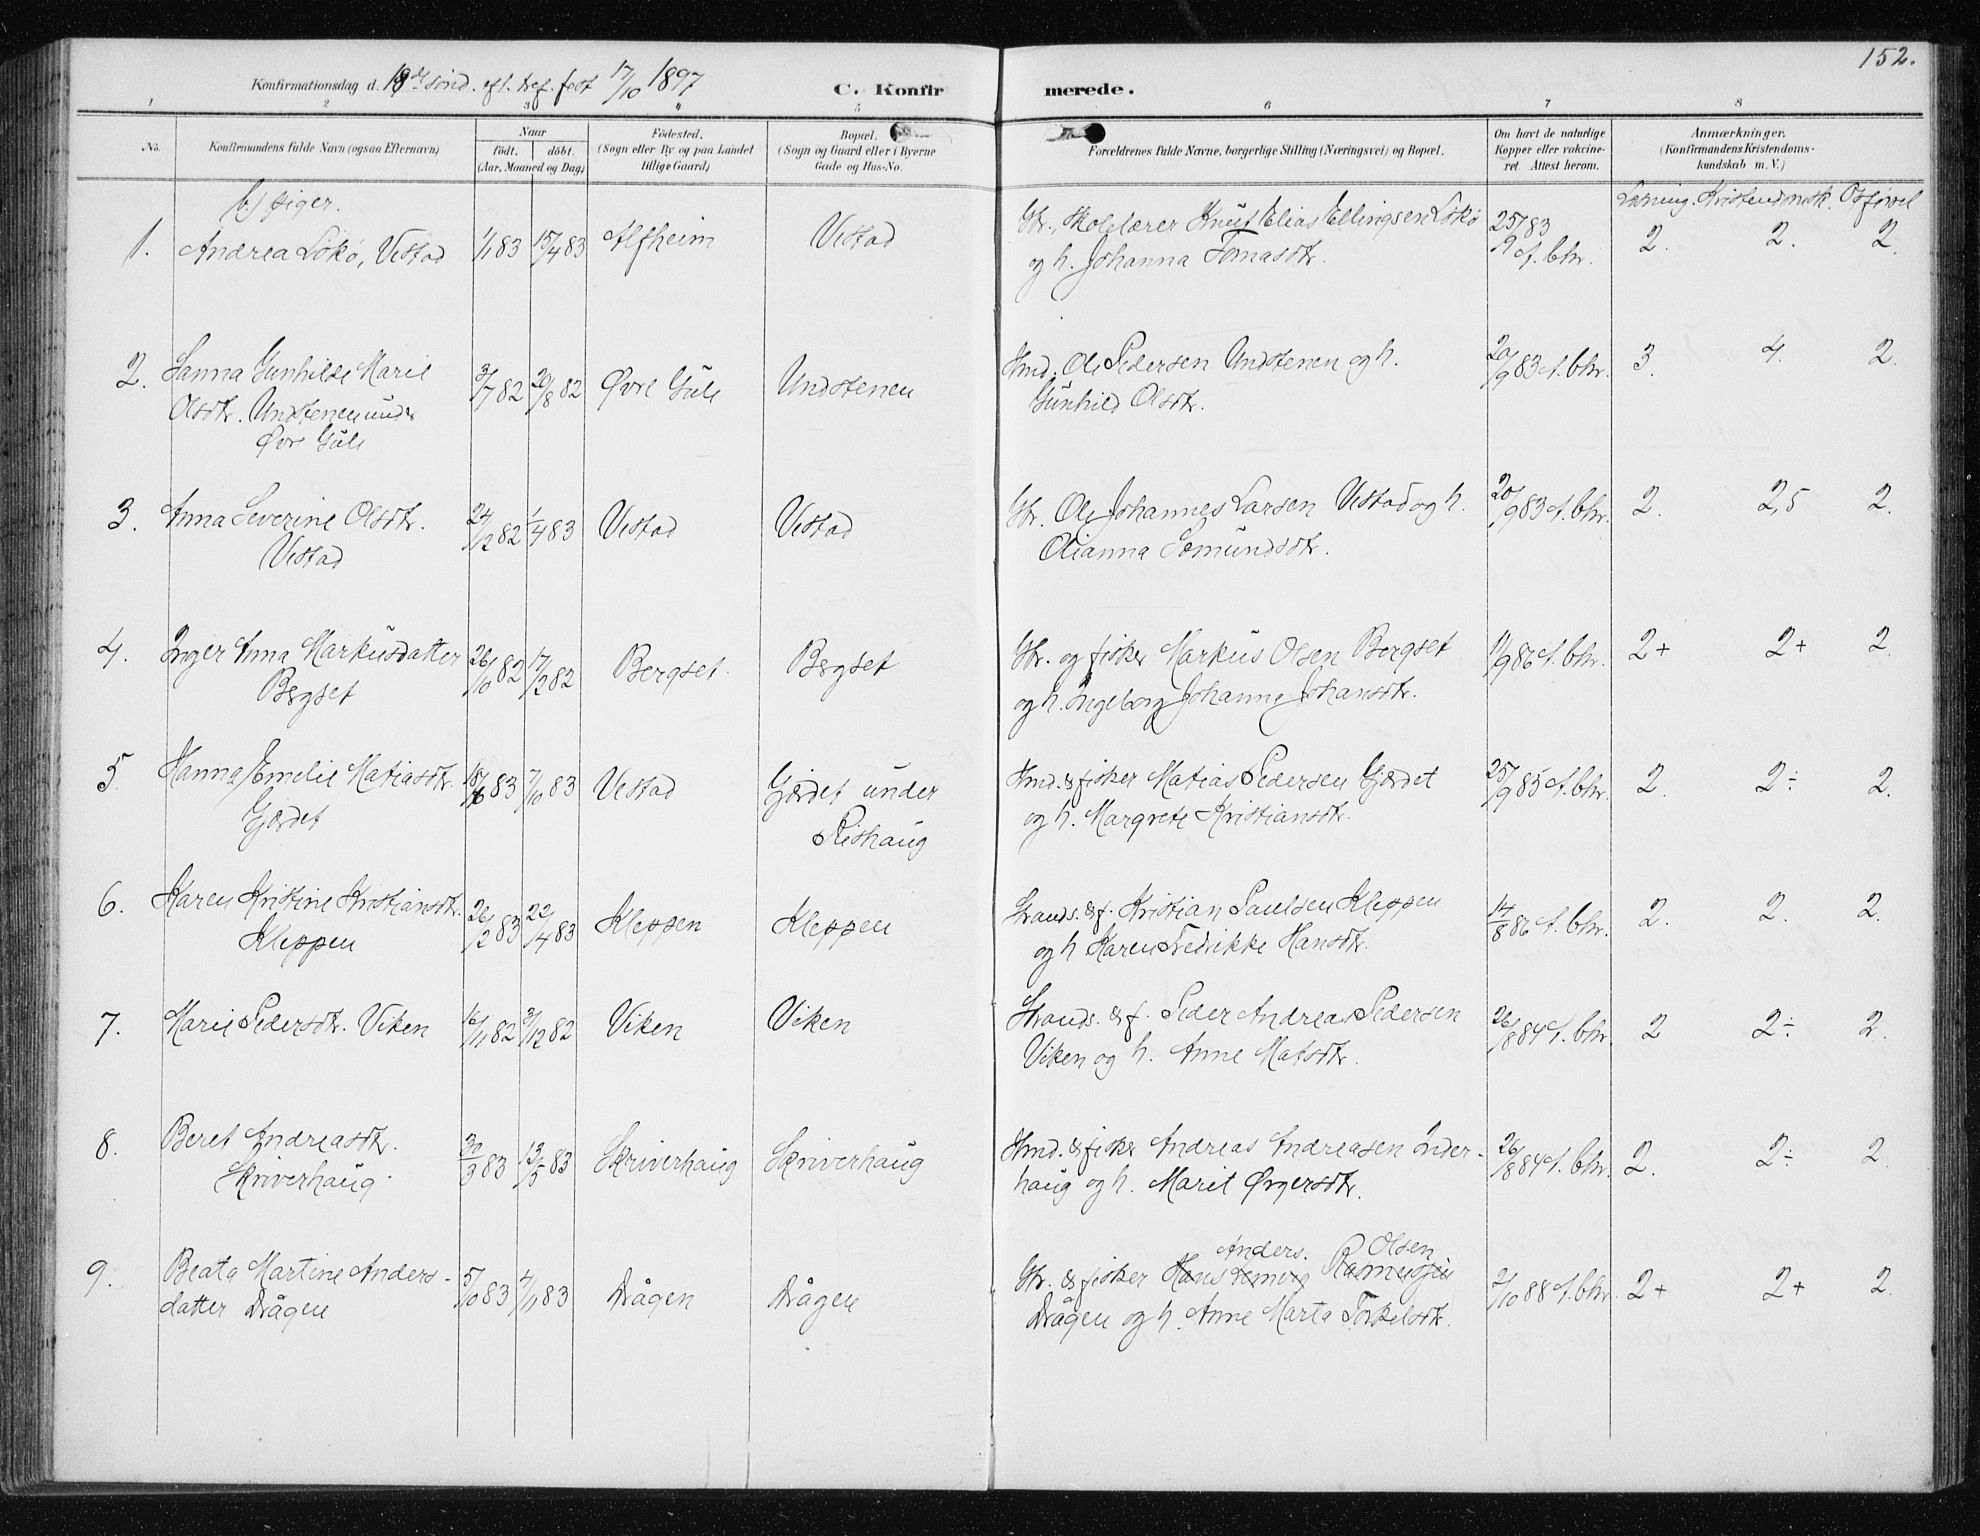 152.
Konfirmationsdag d. 18de sönd. eft. tref. fest 17/10 1897
C. Konfirmerede.
1 2 3 4 5 6 7 8
No.
Konfirmandens fulde Navn (ogsaa Efternavn)
Naar
födt. döbt.
(Aar, Maaned og Dag)
Födested.
(Sogn eller By og paa Landet
tillige Gaard)
Bopæl.
(Sogn og Gaard eller i Byerne
Gade og Hus-No.
Forældrenes fulde Navne, borgerlige Stilling (Næringsvei) og Bopæl.
Om havt de naturlige
Kopper eller vakcine-
ret. Attest herom.
Anmærkninger.
(Konfirmandens Kristendoms-
kundskab m. V.)
b) piger.
Læsning. Kristendomsk. Opförsel
1. Andrea Lökö, Vestad 1/1 83 15/4 83 Alfheim Vestad Gbr., skolelærer Knut Elias Ellingsen Lökö 25/9 83 A. bhr. 2. 2. 2.
og h. Johanna Tomasdtr.
2. Sanna Gunhilde Marie 3/7 82 20/8 82 Øvre Gule Undstenen Hmd. Ole Pedersen Undstenen og h. 20/9 83 A. bhr. 3. 4. 2.
Olsdtr. Undstenen under Gunhild Olsdtr.
Øvre Gule
3. Anna Severine Olsdtr. 24/12 82 1/4 83 Vestad Vestad Gbr. Ole Johannes Larsen Vestad og h. 20/9 83 A. bhr. 2. 2,5 2.
Vestad Olianna Semundsdtr.
4. Inger Anna Markusdatter 26/10 82 17/12 82 Bergset Bergset Gbr. og fisker Markus Olsen Bergset 11/9 86 A. bhr. 2+ 2+ 2.
Bergset og h. Ingeborg Johanna Johansdtr.
5. Hanna Emelie Matiasdtr. 18/8 83 7/10 83 Vestad Gjerdet under Hmd. & fisker Matias Pedersen Gjerdet 25/9 85 A. bhr. 2. 2÷ 2.
Gjerdet Rishaug og h. Margrete Kristiansdtr.
6. Karen Kristine Kristiansdtr. 26/2 83 22/4 83 Kleppen Kleppen Strands. & f. Kristian Paulsen Kleppen 14/8 86 A. bhr. 2. 2. 2.
Kleppen og h Karen Fredrikke Hansdtr.
7. Marie Pedersdtr. Viken 16/11 82 3/12 82 Viken Viken Strands. & f. Peder Andreas Pedersen 26/8 84 A. bhr. 2 2÷ 2.
Viken og h. Anne Matsdtr.
8. Beret Andreasdtr. 30/3 83 13/5 83 Skriverhaug Skriverhaug Hmd. & fisker Andreas Andreasen Inder- 26/8 84 A. bhr. 2. 2÷ 2.
Skriverhaug haug og h. Marit Ørgersdtr.
Anders. Olsen
9. Beata Martine Anders- 5/10 83 4/11 83 Drågen Drågen Gbr. & fisker Hans Lemvig Rasmussen 2/10 88 A. bhr. 2+ 2+ 2.
datter Drågen Drågen og h. Anne Marta Torkelsdtr.